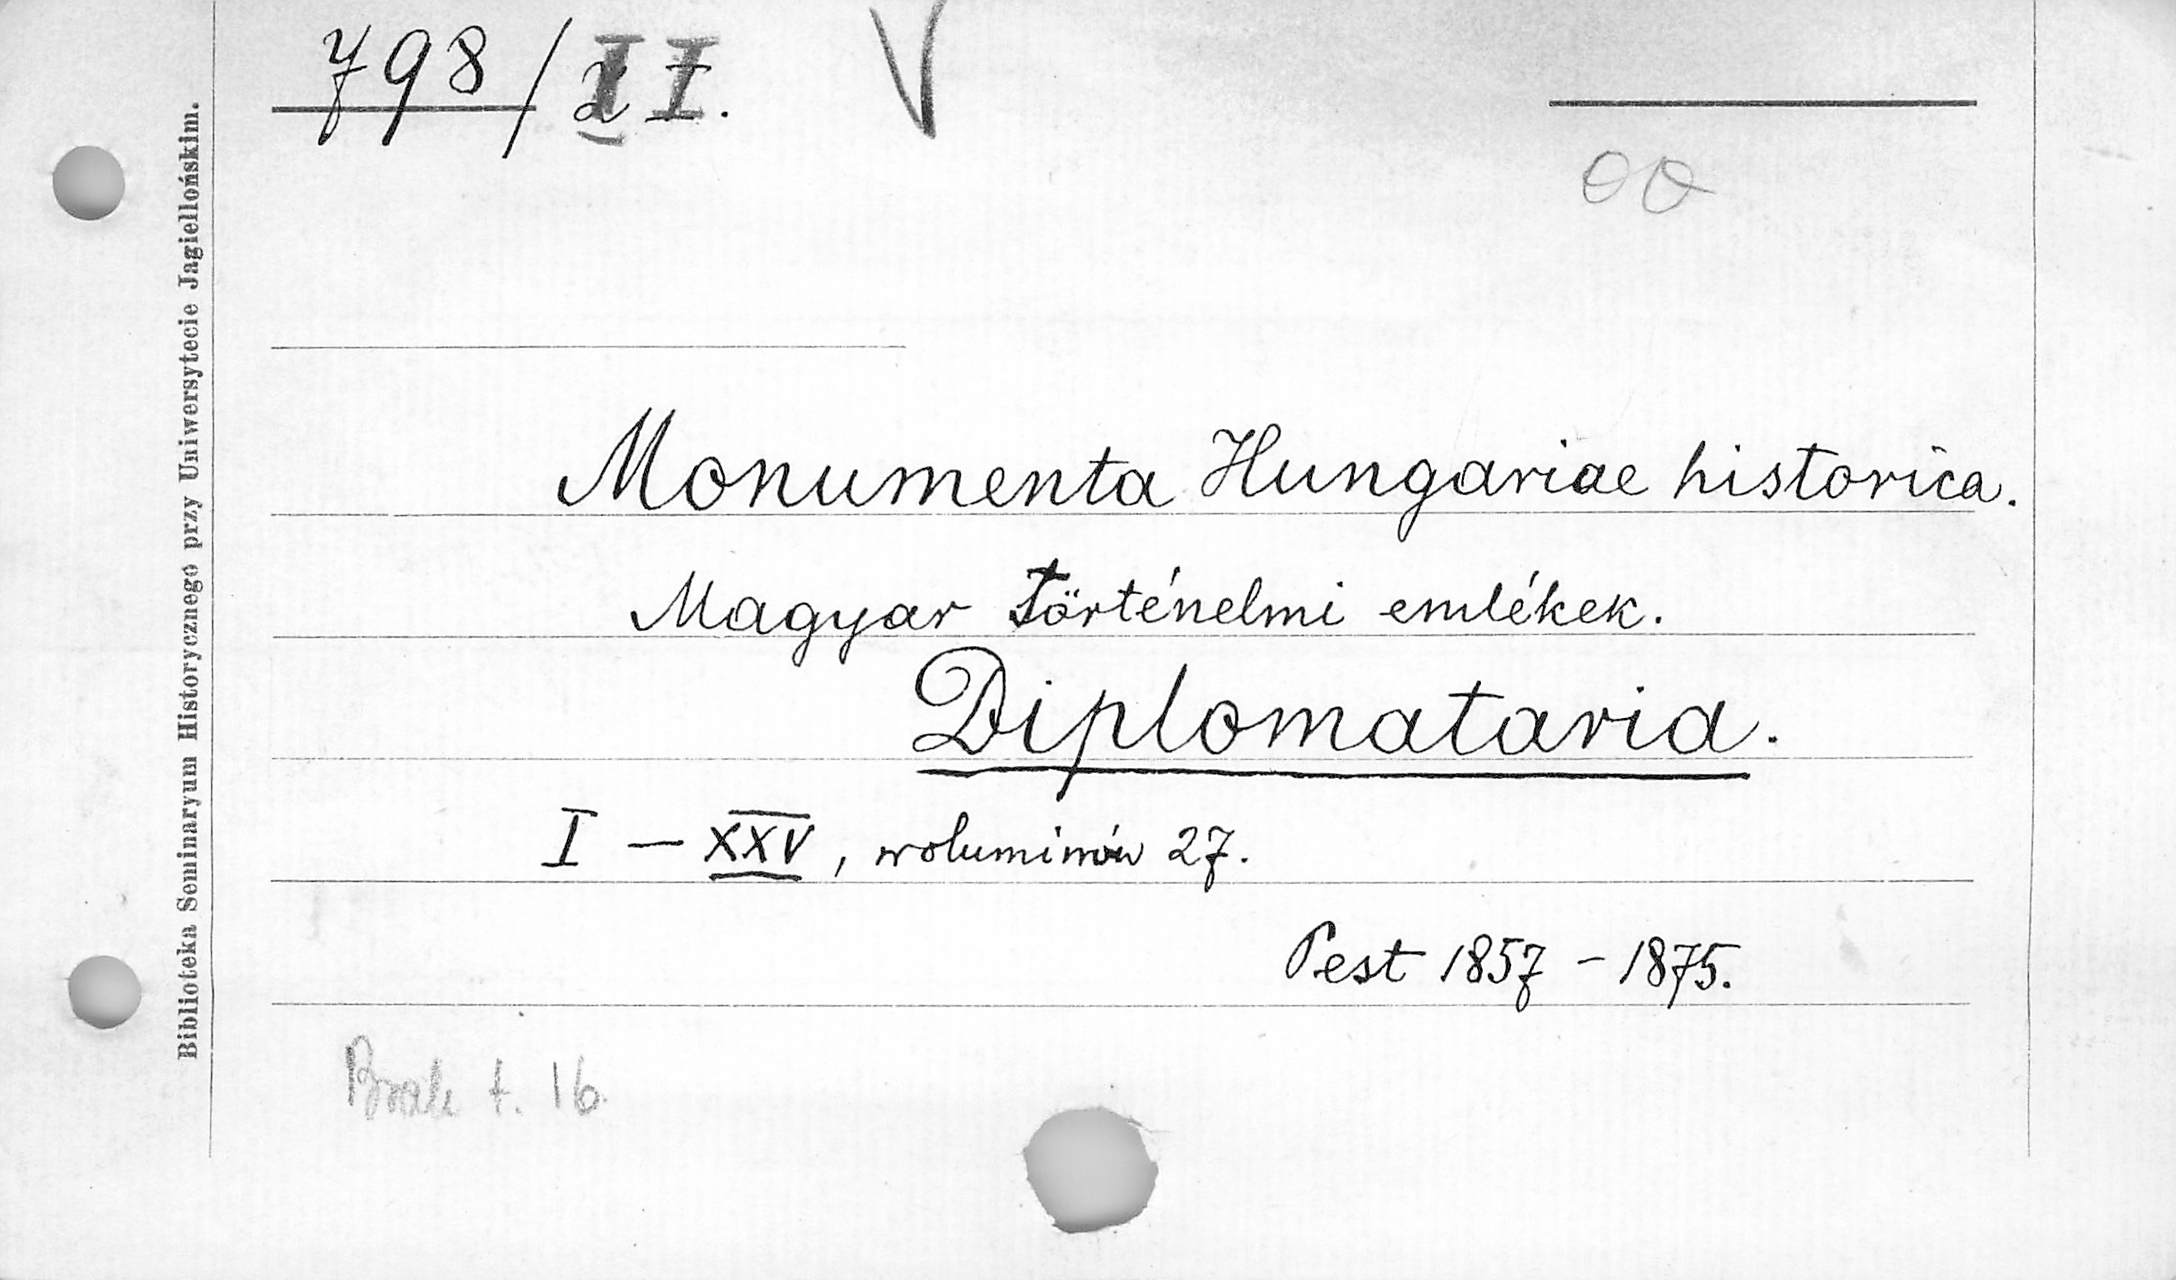 798/II. V
Monumenta Hungariae historica.
Magyar Történelmi emlékek.
Diplomataria.
I – XXV, woluminów 27.
Pest 1857 – 1875.
Brak t. 16.
Biblioteka Seminaryum Historycznego przy Uniwersytecie Jagiellońskim.